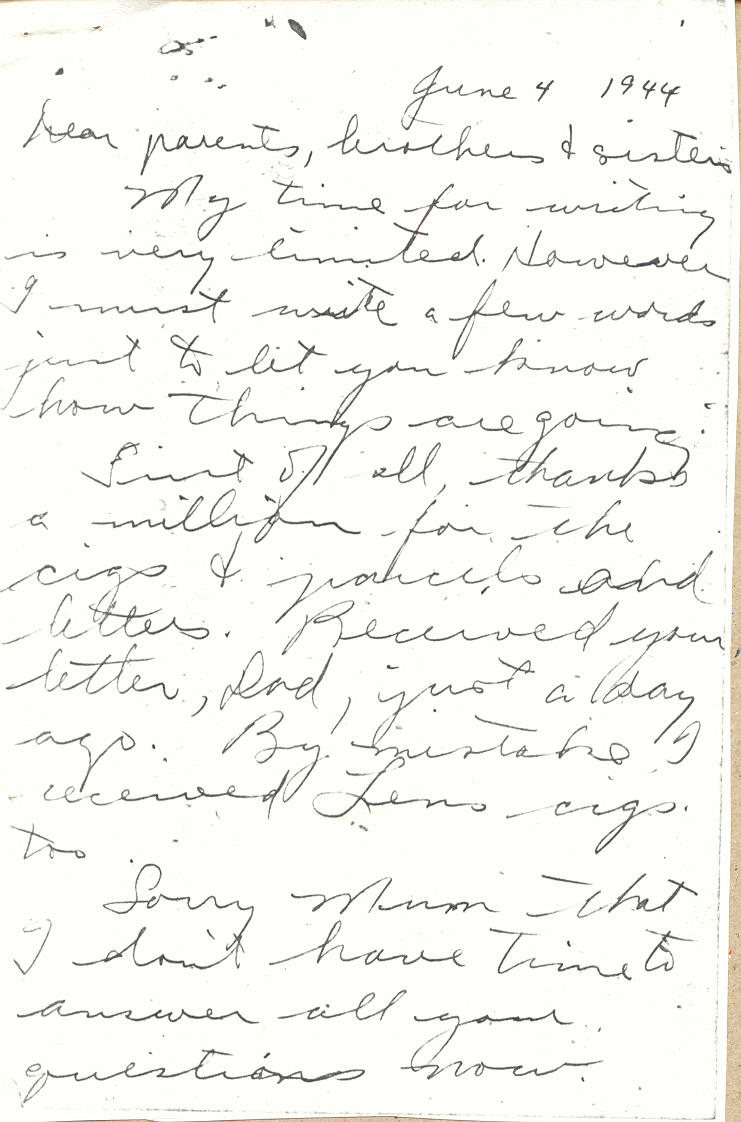 June 4 1944
Dear parents, brothers & sisters
My time for writing
is very limited. However
I must write a few words
just to let you know
how things are going.
First of all, thanks
a million for the
cigs & parcels and
letters. Received your
letter, Dad, just a day
ago. By mistake I
received Lens cigs.
too
Sorry Mum that
I don't have time to
answer all your
questions now.